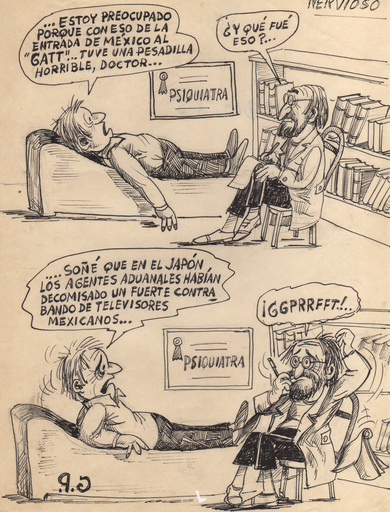 NERVIOSO
...ESTOY PREOCUPADO
PORQUE CON ESO DE LA
ENTRADA DE MÉXICO AL
"GATT"... TUVE UNA PESADILLA
HORRIBLE, DOCTOR...
¿Y QUÉ FUÉ
ESO?...
PSIQUIATRA
....SOÑÉ QUE EN EL JAPÓN
LOS AGENTES ADUANALES HABÍAN
DECOMISADO UN FUERTE CONTRA
BANDO DE TELEVISORES
MEXICANOS...
¡GGPRRFFT!..
PSIQUIATRA